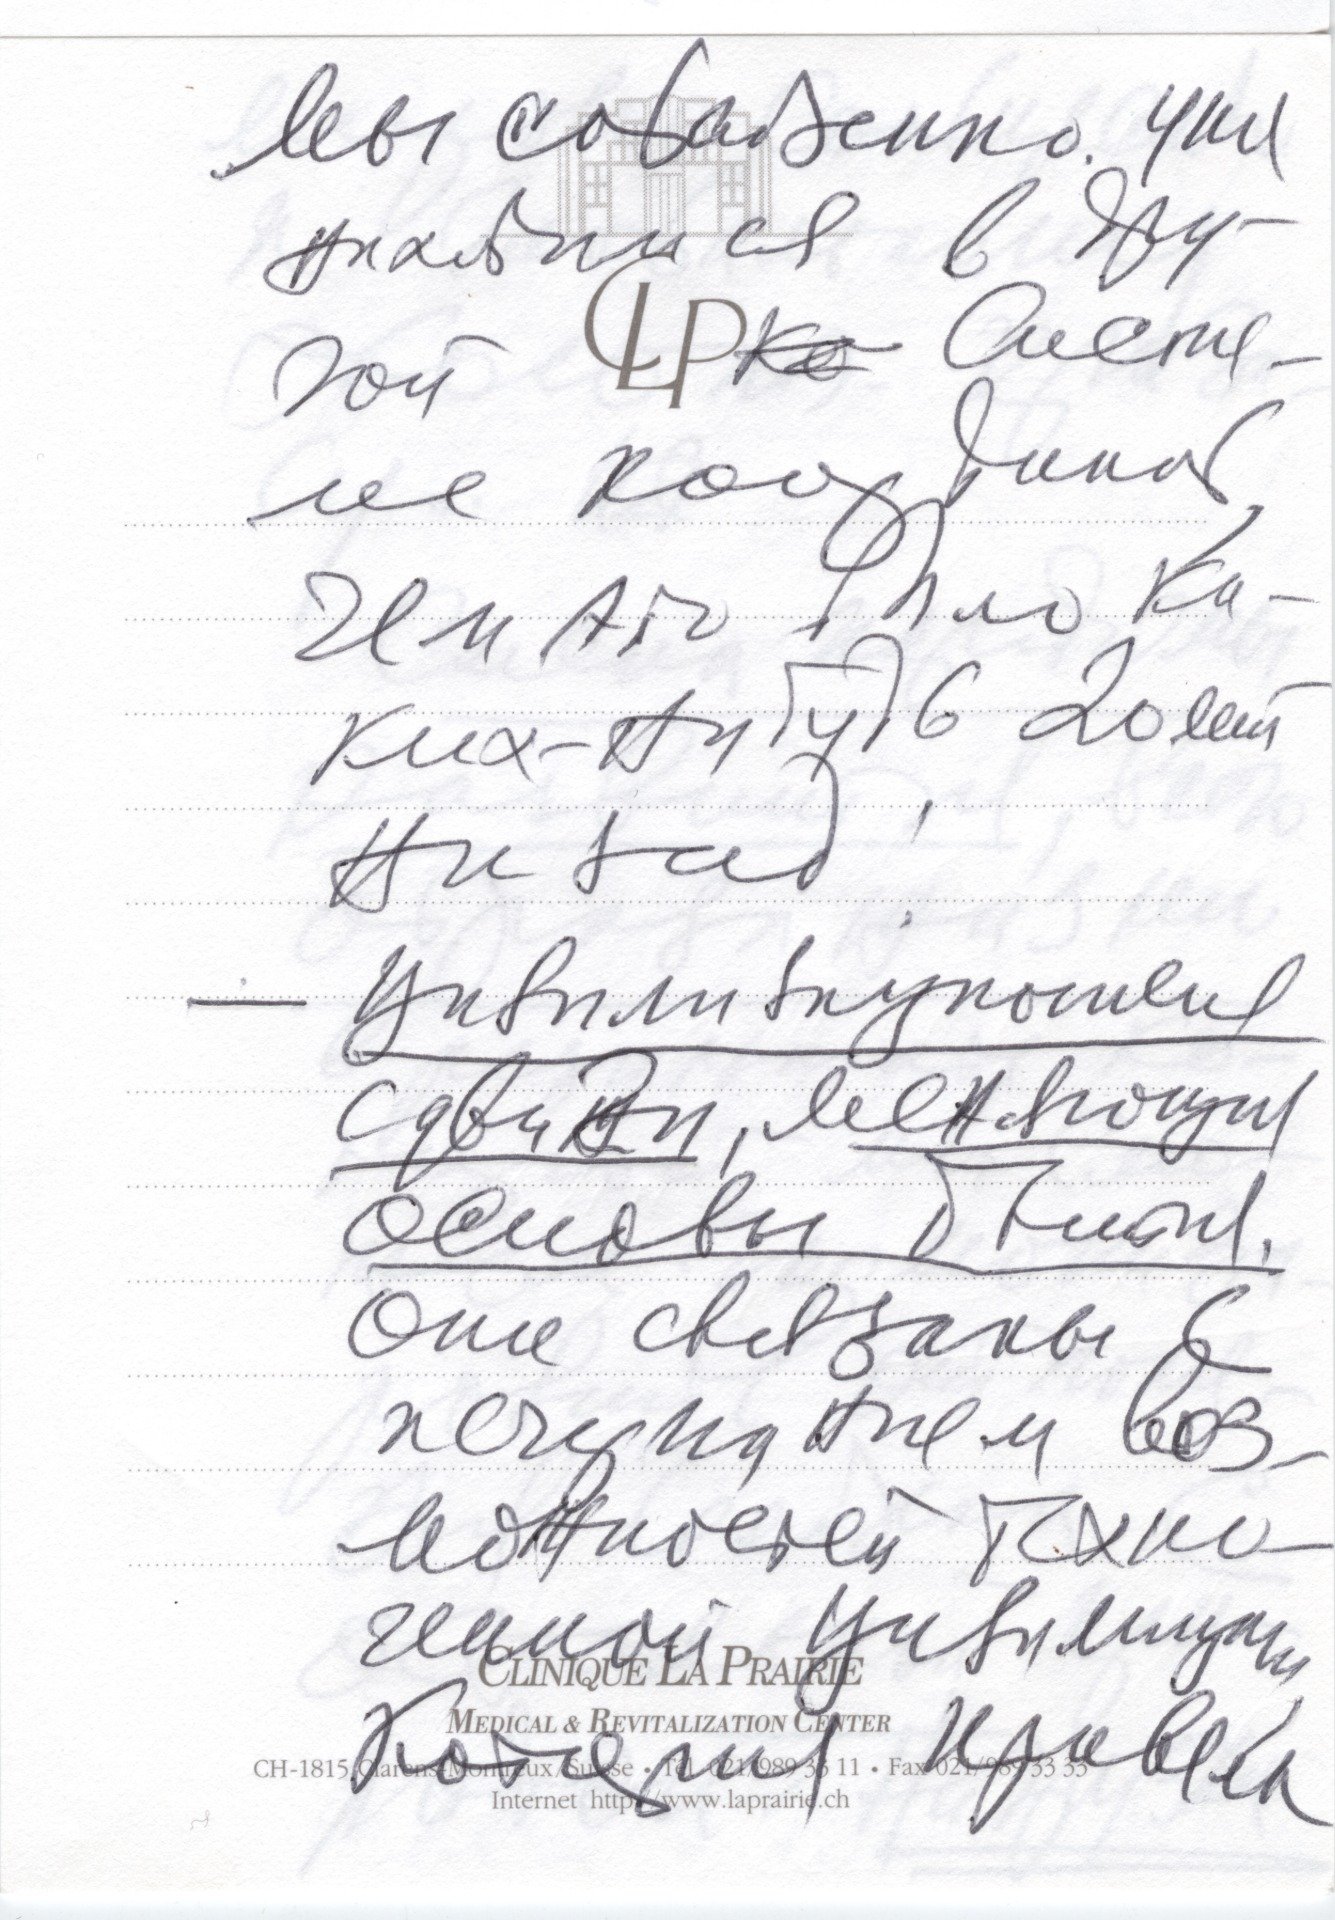 мы совершенно очути
лись в дру-
гой Систе-
ме координат,
чем это было ка-
ких-нибудь 20 лет
назад!
CLP
— Цивилизационные
сдвиги, меняющие
основы бытия.
Они связаны с
исчерпанием воз-
можностей техно-
генной цивилизации
Которая привела
CLINIQUE LA PRAIRIE
MEDICAL & REVITALIZATION CENTER
CH-1815 Clarens-Montreux/Suisse • Tél. 021/989 33 11 • Fax 021/989 33 33
Internet http://www.laprairie.ch